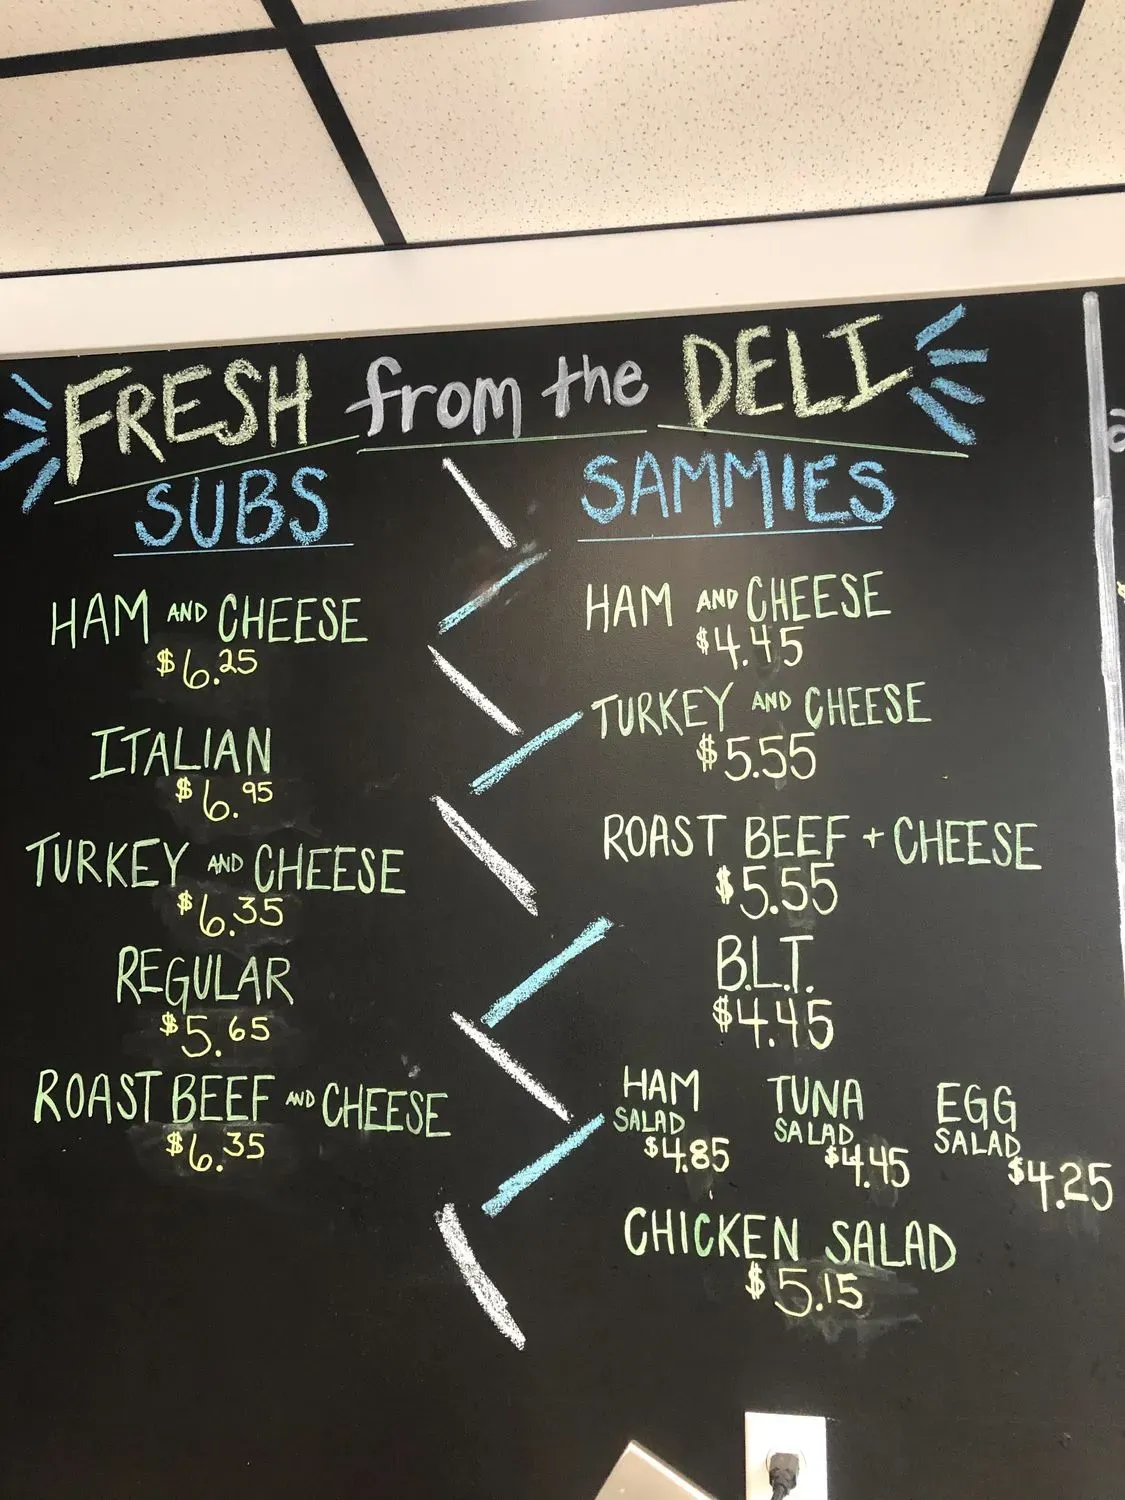 FRESH from the DELI
SUBS
HAM AND CHEESE
$6.25
ITALIAN
$6.95
TURKEY AND CHEESE
$6.35
REGULAR
$5.65
ROAST BEEF AND CHEESE
$6.35
SAMMIES
HAM AND CHEESE
$4.45
TURKEY AND CHEESE
$5.55
ROAST BEEF + CHEESE
$5.55
B.L.T.
$4.45
HAM
SALAD
$4.85
TUNA
SALAD
$4.45
EGG
SALAD
$4.25
CHICKEN SALAD
$5.15